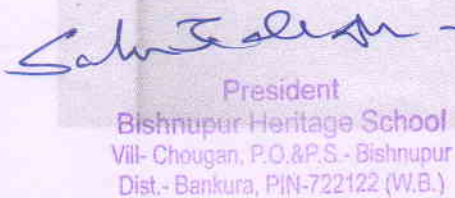 President
Bishnupur Heritage School
Vill- Chougan, P.O.&P.S.- Bishnupur
Dist.- Bankura, PIN-722122 (W.B.)